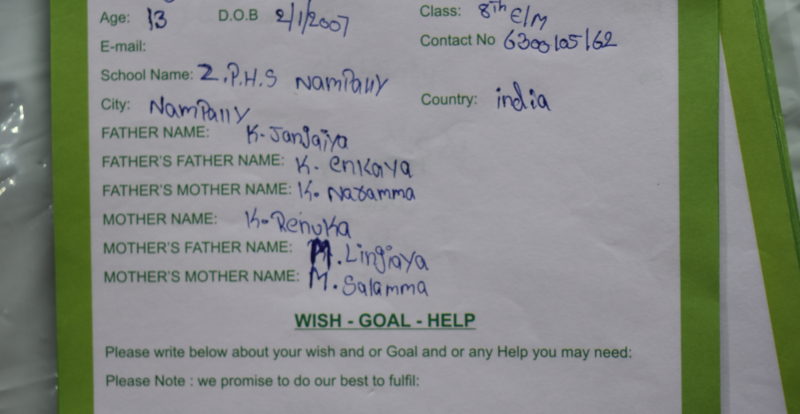 Age: 13 D.O.B 2/1/2007 Class: 8th E/M
E-mail: Contact No 6300105162
School Name: Z.P.H.S NamPally
City: NamPally Country: india
FATHER NAME: K. Janjaiya
FATHER'S FATHER NAME: K. enkaya
FATHER'S MOTHER NAME: K. Naramma
MOTHER NAME: K. Renuka
MOTHER'S FATHER NAME: M. Lingiaya
MOTHER'S MOTHER NAME: M. Salamma
WISH - GOAL - HELP
Please write below about your wish and or Goal and or any Help you may need:
Please Note : we promise to do our best to fulfil: